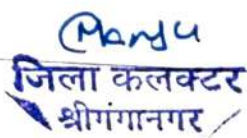 Manju
जिला कलक्टर
श्रीगंगानगर